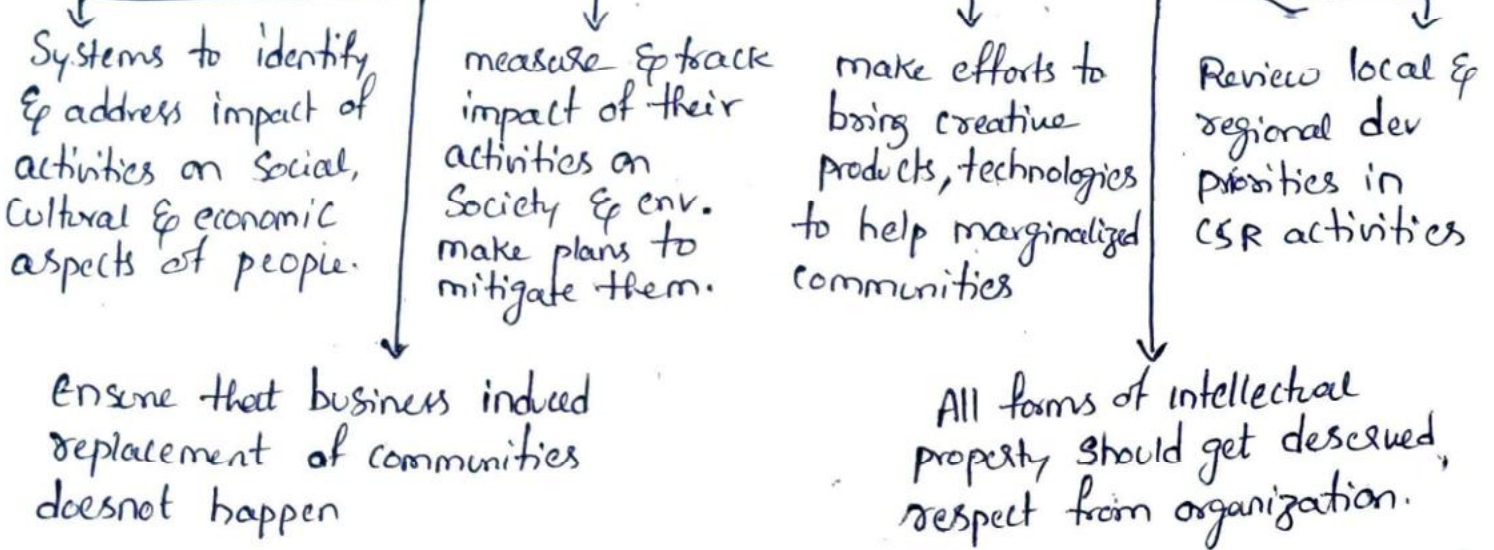 Systems to identify
& address impact of
activities on Social,
Cultural & economic
aspects of people.
measure & track
impact of their
activities on
Society & env.
make plans to
mitigate them.
make efforts to
bring creative
products, technologies
to help marginalized
communities
Review local &
regional dev
priorities in
CSR activities
Ensure that business induced
replacement of communities
doesnot happen
All forms of intellectual
property should get deserved
respect from organization.